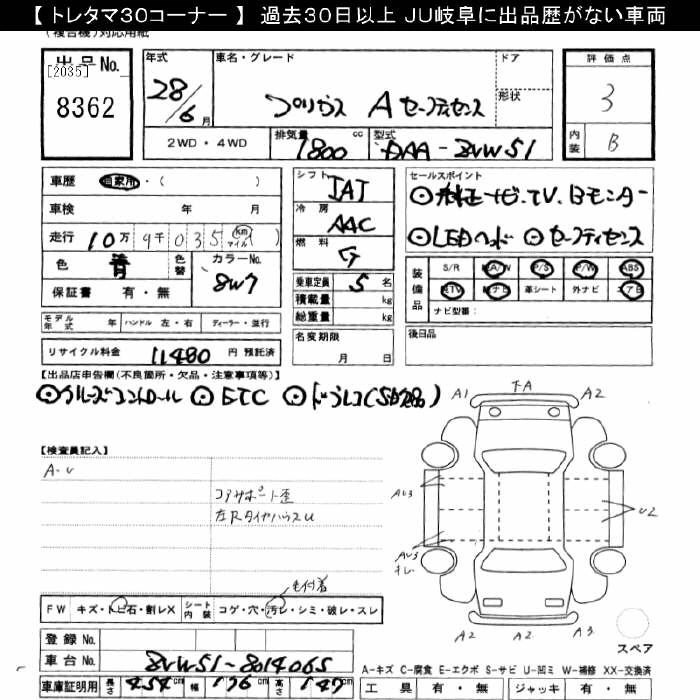 【 トレタマ30コーナー 】 過去30日以上 JU岐阜に出品歴がない車両
(複合機)対応用紙
出品 No.
[2035]
8362
年式
28/6 月
車名・グレード
プリウス A セーフティセンス
ドア
形状
評価点
3
内装
B
2WD・4WD
排気量
1800 cc
型式
DAA-ZVW51
車歴 自家用・( )
車検 年 月
走行 10万 9千 035 km マイル ( )
色 青 色替
カラーNo.
8W7
保証書 有・無
シフト
IAT
冷房
AAC
燃料
G
乗車定員 5 名
積載量 kg
総重量 kg
セールスポイント
⊙純正ナビ.TV.Bモニター
⊙LEDヘッド ⊙セーフティセンス
装備品
S/R A/W P/S P/W ABS
ATV 純ナビ 革シート 外ナビ エアB
ナビ型番:
モデル年式 年 ハンドル 左・右 ディーラー・並行
リサイクル料金 11480 円 預託済
名変期限
月 日
後日品
【出品店申告欄(不良箇所・欠品・注意事項等)】
⊙クルーズコントロール ⊙ETC ⊙ドラレコ(
【検査員記入】
A-U
コアサポート歪
左RタイヤハウスU
毛付着
FW キズ・トビ石・割レX
シート内装 コゲ・穴・汚レ・シミ・破レ・スレ
A1 FA A2
AU3
U2
AU3
A2 A2 A3
スペア
登録 No.
車台 No. ZVW51-8014065
車庫証明用 長さ 454 cm 幅 176 cm 高さ 147 cm
A-キズ C-腐食 E-エクボ S-サビ U-凹ミ W-補修 XX-交換済
工具 有・無 ジャッキ 有・無